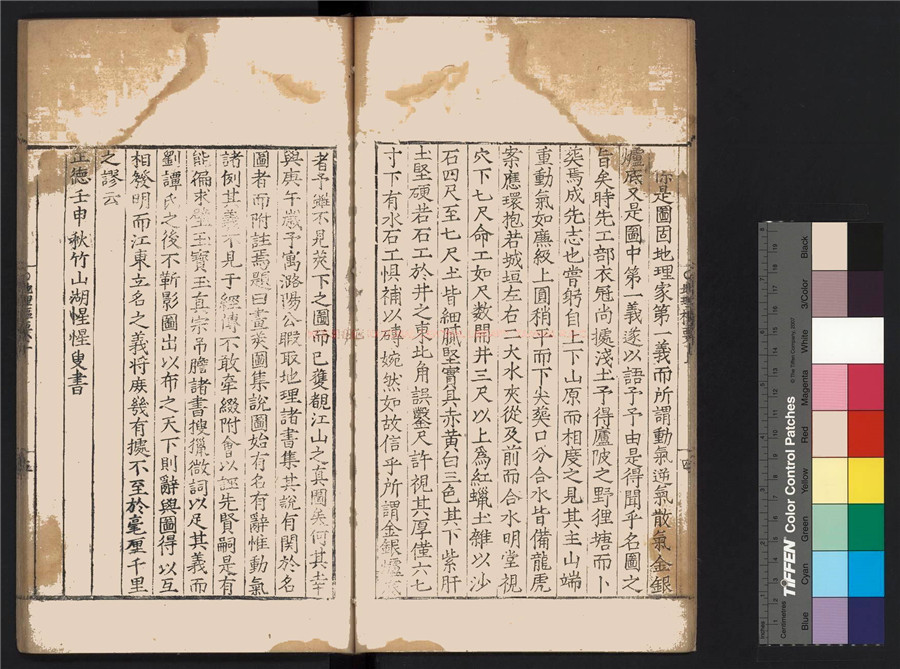 是圖固地理家第一義而所謂動氣逆氣散氣金銀
爐底又是圖中第一義遂以語予予由是得聞乎名圖之
旨矣時先工部衣冠尚擴淺土予得廬陂之野狸塘而卜
葖焉成先志也嘗躬自上下山原而相度之見其主山端
重動氣如廡級上圓稍平而下尖葖口分合水皆備龍虎
案應環抱若城垣左右二大水夾從及前而合水明堂視
穴下七尺命工如尺數開井三尺以上為紅蠟土雜以沙
石四尺至七尺土皆細膩堅實具赤黃白三色其下紫肝
土堅硬若石工於井之東北角誤鑿尺許視其厚僅六七
寸下有水石工惧補以磚婉然如故信乎所謂金銀爐
者予雖不見葖下之圖而已獲覩江山之真圖矣何其幸
與庚午歲予寓潞陽公暇取地理諸書集其說有関於名
圖者而附註焉題曰畫葖圖集說圖始有名有辭惟動氣
諸例其義不見于經傳不敢牽綴附會以誣先賢嗣是有
能徧求璧玉寶玉真宗吊膽諸書搜獵微詞以足其義而
劉譚氏之後不靳影圖出以布之天下則辭與圖得以互
相發明而江東立名之義將庶幾有據不至於毫厘千里
之謬云
正德壬申秋竹山湖惺惺叟書
Black
3/Color
White
Magenta
Red
Yellow
Green
Cyan
Blue
TIFFEN Color Control Patches
© The Tiffen Company, 2007
Centimetres
Inches